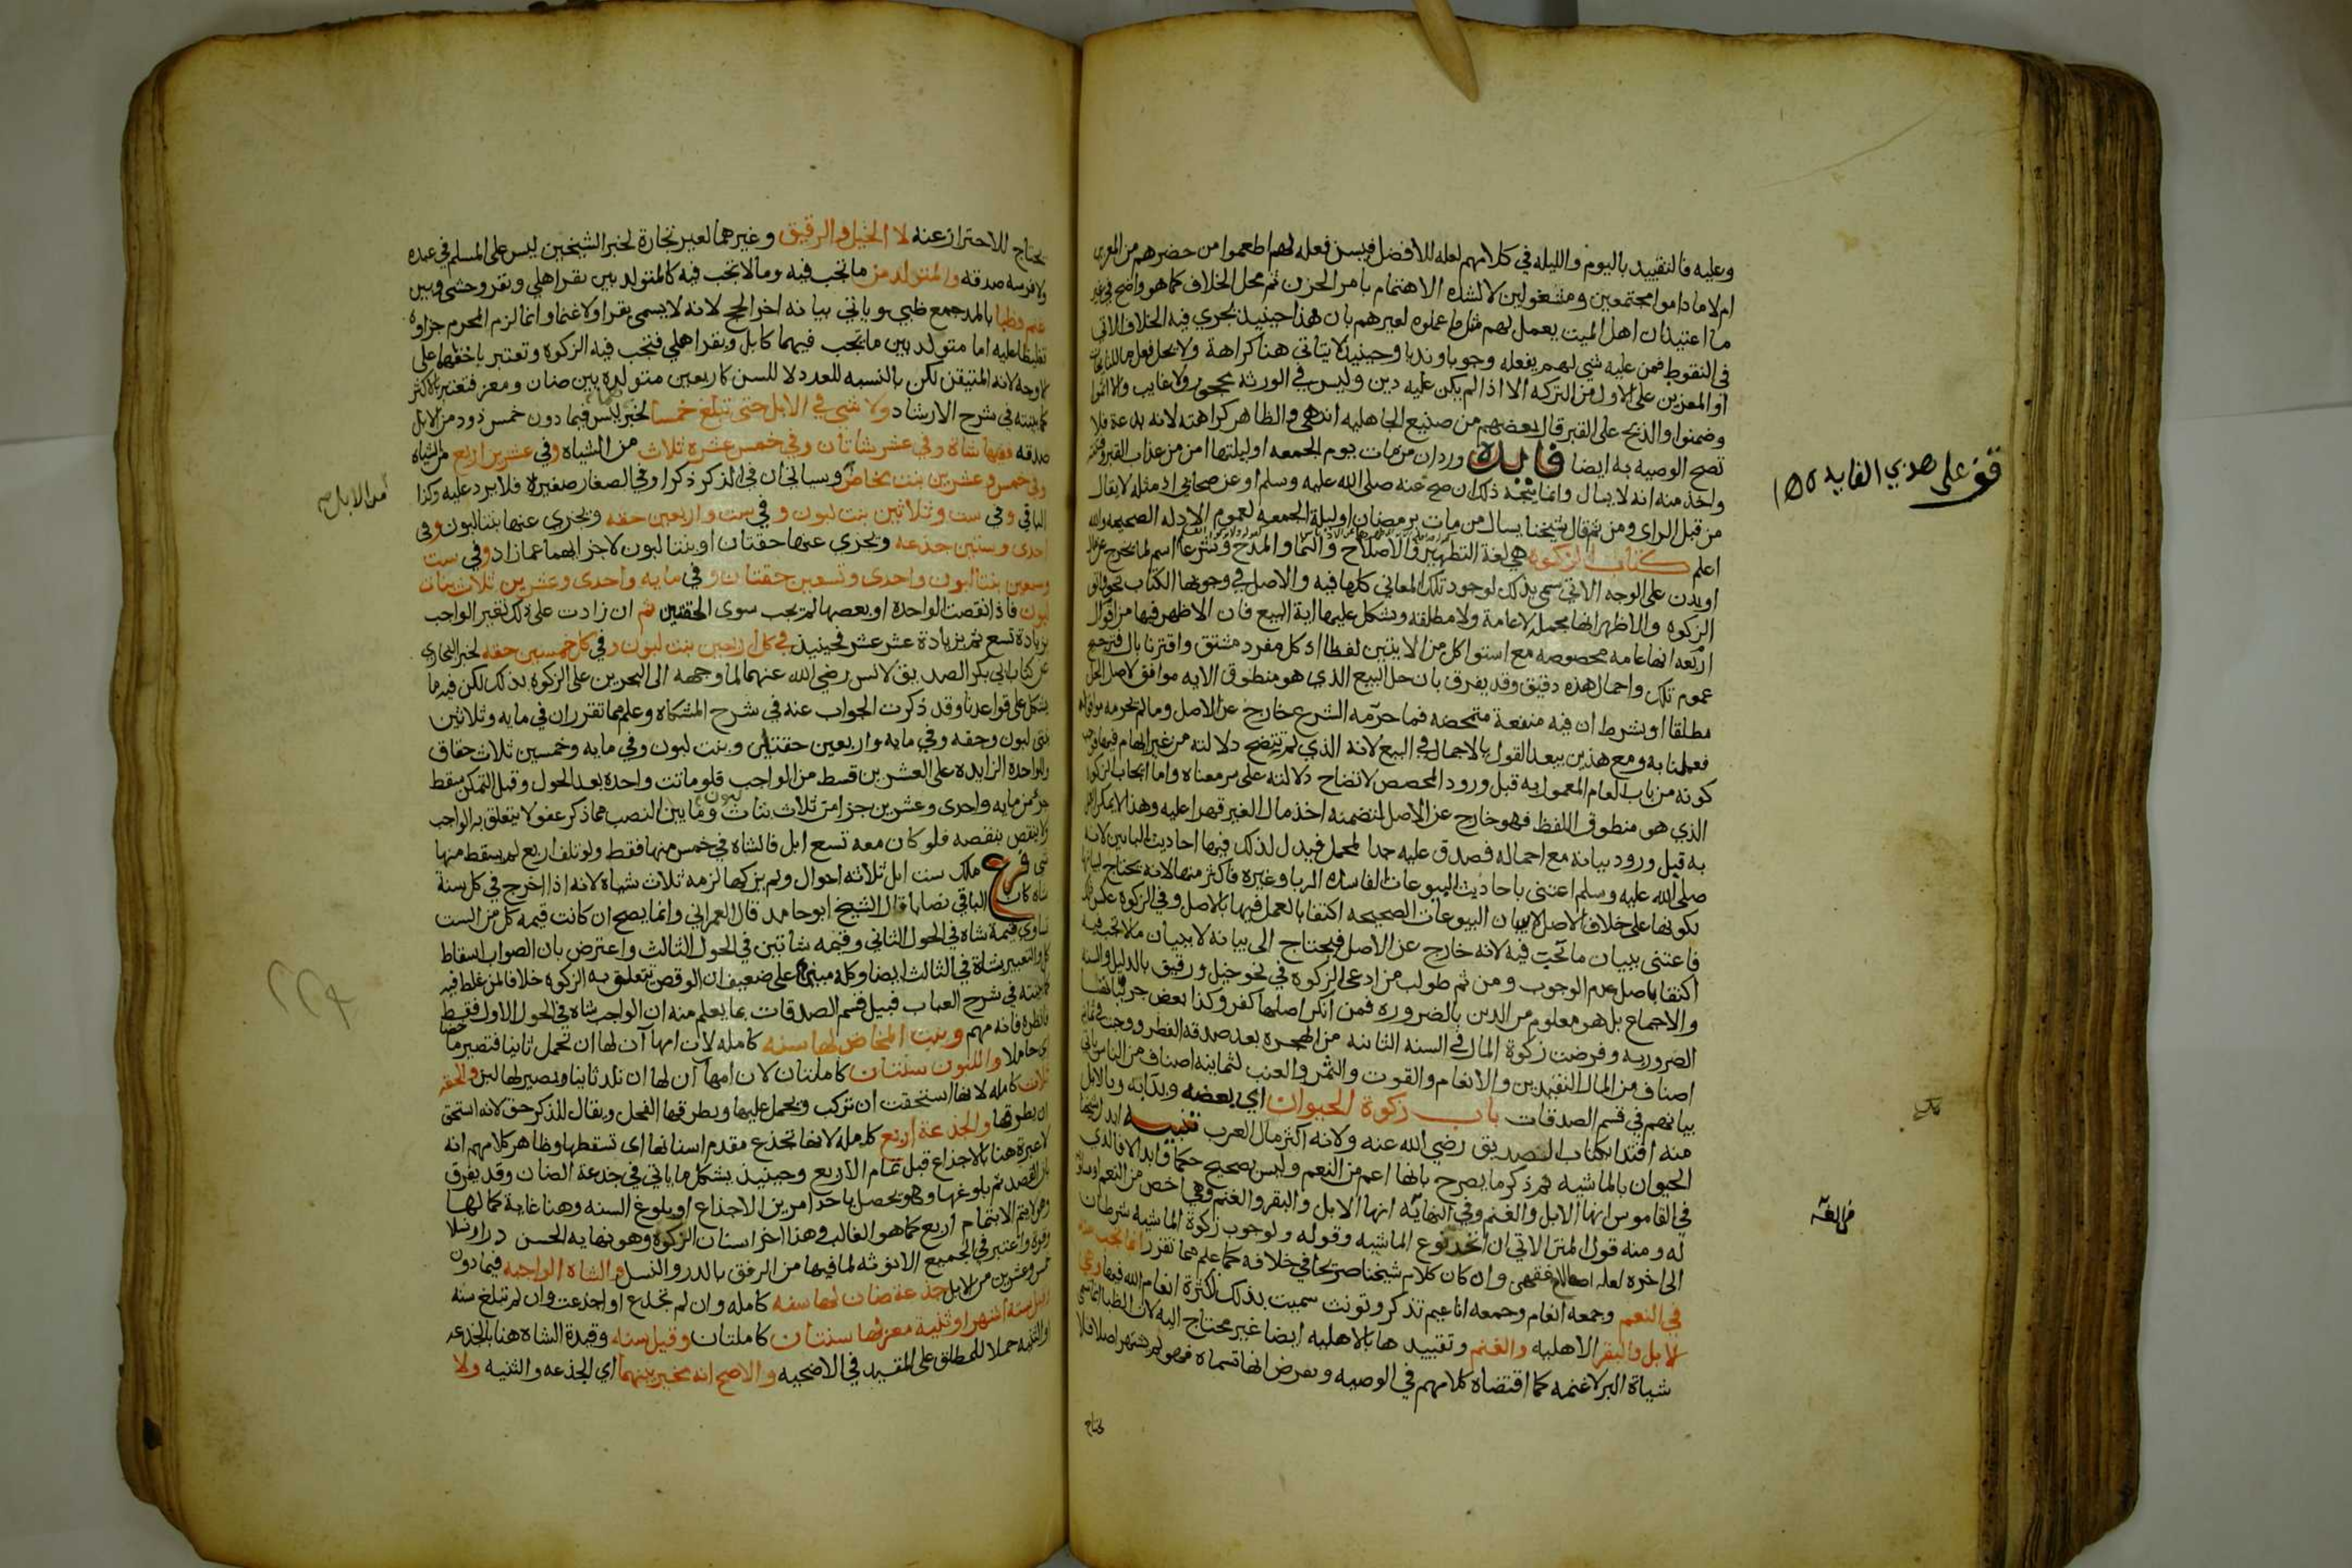 وعليه فالتقييد باليوم والليله في كلامهم لعله للافضل فيسن فعله لهم اطعموا من حضرهم من المعزين
ام لا ما داموا مجتمعين ومشغولين لا لشده الاهتمام بامر الحزن ثم محل الخلاف كما هو واضح في غير
ما اعتيد ان اهل الميت يعمل لهم مثل ما عملوه لغيرهم بان هذا حينيذ يجري فيه الخلاف الاتي
في النقوط فمن عليه شي لهم يفعله وجوبا وندبا وحينيذ لا يتاتي هنا كراهة ولا يحل فعل
او المعزين على الاول من التركه الا اذا لم يكن عليه دين وليس في الورثه محجور ولا غايب والا اثموا
وضمنوا والذبح على القبر قال بعضهم من صنيع الجاهليه انتهى والظاهر كراهته لانه بدعة فلا
تصح الوصيه به ايضا فايده ورد ان من مات يوم الجمعه او ليلتها امن من عذاب القبر وفتنته
واخذ منه انه لا يسال وانما يتجه ذلك ان صح عنه صلى الله عليه وسلم او عن صحابي اذ مثله لا يقال
من قبل الراي ومن ثم قال شيخنا يسال من مات برمضان او ليلة الجمعه لعموم الادله الصحيحه والله
اعلم كتاب الزكوه هي لغة التطهير والاصلاح والنما والمدح وشرعا اسم لما يخرج عن مال
او بدن على الوجه الاتي سمي بذلك لوجود تلك المعاني كلها فيه والاصل في وجوبها الكتاب نحو واتوا
الزكوه والاظهر انها مجمله لا عامة ولا مطلقه ويشكل عليها اية البيع فان الاظهر فيها من اقوال
اربعه انها عامه مخصوصه مع استوا كل من الايتين لفظا اذ كل مفرد مشتق واقترنا بال فترجيح
عموم تلك واجمال هذه دقيق وقد يفرق بان حل البيع الذي هو منطوق الايه موافق لاصل الحل
مطلقا او بشرط ان فيه منفعة متمحضه فما حرمه الشرع خارج عن الاصل وما لم يحرمه موافق له
فعملنا به ومع هذين يبعد القول بالاجمال في البيع لانه الذي لم تتضح دلالته من غير ابهام فيها فوجب
كونه من باب العام المعمول به قبل ورود المخصص لاتضاح دلالته على مر معناه واما ايجاب الزكوه
الذي هو منطوق اللفظ فهو خارج عن الاصل لتضمنه اخذ مال الغير قهرا عليه وهذا لا يمكن العمل
به قبل ورود بيانه مع اجماله فصدق عليه حد المجمل فيدل لذلك فيهما احاديث البابين لانه
صلى الله عليه وسلم اعتنى باحاديث البيوعات الفاسده الربا وغيره فاكثر منها لانه يحتاج لبيانها
لكونها على خلاف الاصل لا ببيان البيوعات الصحيحه اكتفا بالعمل فيها بالاصل وفي الزكوه عكس ذلك
فاعتنى ببيان ما تجب فيه لانه خارج عن الاصل فيحتاج الى بيانه لا ببيان ما لا تجب فيه
اكتفا باصل عدم الوجوب ومن ثم طولب من ادعى الزكوه في نحو خيل ورقيق بالدليل والسنه
والاجماع بل هو معلوم من الدين بالضروره فمن انكر اصلها كفر وكذا بعض جزئياتها
الضروريه وفرضت زكوة المال في السنه الثانيه من الهجره بعد صدقه الفطر ووجبت في ثمانيه
اصناف من المال النقدين والانعام والقوت والثمر والعنب لثمانيه اصناف من الناس ياتي
بيانهم في قسم الصدقات باب زكوة الحيوان اي بعضه وبدا به وبالابل
منه اقتدا بكتاب الصديق رضي الله عنه ولانه اكثر مال العرب تنبيه ابدل شيخنا
الحيوان بالماشيه ثم ذكر ما يصرح بانها اعم من النعم وليس بصحيح حكما وابدالا فالذي
في القاموس انها الابل والغنم وفي النهايه انها الابل والبقر والغنم وهي اخص من النعم او مساويه
له ومنه قول المتن الاتي ان اتحد نوع الماشيه وقوله ولوجوب زكوة الماشيه شرطان
الى اخره لعله اصطلاح فقهي وان كان كلام شيخنا صريحا في خلافه كما علم مما تقرر انما تجب منه
في النعم وجمعه انعام وجمعه اناعيم تذكر وتونث سميت بذلك لكثرة انعام الله فيها وهي
الابل والبقر الاهليه والغنم وتقييدها بالاهليه ايضا غير محتاج اليه لان الظبا انما تسمى
شياة البر لا غنمه كما اقتضاه كلامهم في الوصيه وبفرض انها تسماه فهو لم يشتهر اصلا فلا
يحتاج
قف على هذي الفايده
يحتاج للاحتراز عنه لا الخيل والرقيق وغيرهما لغير تجارة لخبر الشيخين ليس على المسلم في عبده
ولا فرسه صدقه والمتولد من ما تجب فيه وما لا تجب فيه كالمتولد بين بقر اهلي وبقر وحشي وبين
غنم وظبا بالمد جمع ظبي وياتي بيانه اخر الحج لانه لا يسمى بقرا ولا غنما وانما لزم المحرم جزاوه
تغليظا عليه اما متولد بين ما تجب فيهما كابل وبقر اهلي فتجب فيه الزكوة وتعتبر باخفهما على
الاوجه لانه المتيقن لكن بالنسبه للعدد لا للسن كاربعين متولده بين ضان ومعز فتعتبر بالاكثر
كما بينته في شرح الارشاد ولا شي في الابل حتى تبلغ خمسا لخبر ليس فيما دون خمس ذود من الابل
صدقه ففيها شاة وفي عشر شاتان وفي خمس عشره ثلاث من الشياه وفي عشرين اربع من الشياه
وفي خمس وعشرين بنت مخاض وسياتي ان في الذكر ذكرا وفي الصغار صغيرة فلا يرد عليه وكذا
الباقي وفي ست وثلاثين بنت لبون وفي ست واربعين حقه ويجزي عنها بنتا لبون وفي
احدى وستين جذعه ويجزي عنها حقتان او بنتا لبون لاجزايهما عما زاد وفي ست
وسبعين بنتا لبون واحدى وتسعين حقتان وفي مايه واحدى وعشرين ثلاث بنات
لبون فاذا نقصت الواحدة او بعضها لم تجب سوى الحقتين ثم ان زادت على ذلك تغير الواجب
بزيادة تسع ثم بزيادة عشر عشر فحينيذ في كل اربعين بنت لبون وفي كل خمسين حقه لخبر البخاري
عن كتاب ابي بكر الصديق لانس رضي الله عنهما لما وجهه الى البحرين على الزكوة بذلك لكن فيه ما
يشكل على قواعدنا وقد ذكرت الجواب عنه في شرح المشكاه وعلم مما تقرر ان في مايه وثلاثين
بنتي لبون وحقه وفي مايه واربعين حقتان وبنت لبون وفي مايه وخمسين ثلاث حقاق
وللواحدة الزايده على العشرين قسط من الواجب فلو ماتت واحدة بعد الحول وقبل التمكن سقط
جزء من مايه واحدى وعشرين جزا من ثلاث بنات لبون وما بين النصب مما ذكر عفو لا يتعلق به الواجب
ولا ينقص بنقصه فلو كان معه تسع ابل فالشاه في خمس منها فقط ولو تلف اربع لم يسقط منها
شي فرع ملك ست ابل ثلاثه احوال ولم يزكها لزمه ثلاث شياة لانه اذا اخرج في كل سنة
شاه كان الباقي نصابا قال الشيخ ابو حامد قال العمراني وانما يصح ان كانت قيمه كل من الست
تساوي قيمة شاه في الحول الثاني وقيمه شاتين في الحول الثالث واعترض بان الصواب اسقاط
كل والتعبير بشاة في الثالث ايضا وكله مبني على ضعيف ان الوقص تتعلق به الزكوه خلافا لمن غلط فيه
كما بينته في شرح العباب قبيل قسم الصدقات بما يعلم منه ان الواجب شاه في الحول الاول فقط
فانظره فانه مهم وبنت المخاض لها سنه كامله لان امها آن لها ان تحمل ثانيا فتصير ماخضا
اي حاملا واللبون سنتان كاملتان لان امها آن لها ان تلد ثانيا ويصير لها لبن والحقه
ثلاث كامله لانها استحقت ان تركب ويحمل عليها ويطرقها الفحل ويقال للذكر حق لانه استحق
ان يطرقها والجذعة اربع كامله لانها تجذع مقدم اسنانها اي تسقطها وظاهر كلامهم انه
لا عبرة هنا بالاجذاع قبل تمام الاربع وحينيذ يشكل ما ياتي في جذعة الضان وقد يفرق
بان القصد ثم بلوغها وهو يحصل باحد امرين الاجذاع او بلوغ السنه وهنا غاية كمالها
وهو لا يتم الا بتمام اربع كما هو الغالب وهذا اخر اسنان الزكوة وهو نهايه الحسن درا ونسلا
وقوة واعتبر في الجميع الانوثه لما فيها من الرفق بالدر والنسل والشاه الواجبه فيما دون
خمس وعشرين من الابل جذعة ضان لها سنه كامله وان لم تجذع او اجذعت وان لم تبلغ سنه
وقيل ستة اشهر او ثنية معز لها سنتان كاملتان وقيل سنه وقيدة الشاه هنا بالجذعه
والثنيه حملا للمطلق على المقيد في الاضحيه والاصح انه مخير بينهما اي الجذعه والثنيه ولا
من الابل